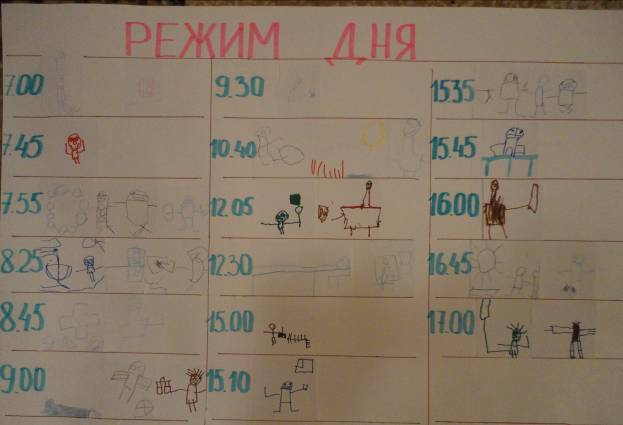 РЕЖИМ ДНЯ
7.00
7.45
7.55
8.25
8.45
9.00
9.30
10.40
12.05
12.30
15.00
15.10
15.35
15.45
16.00
16.45
17.00